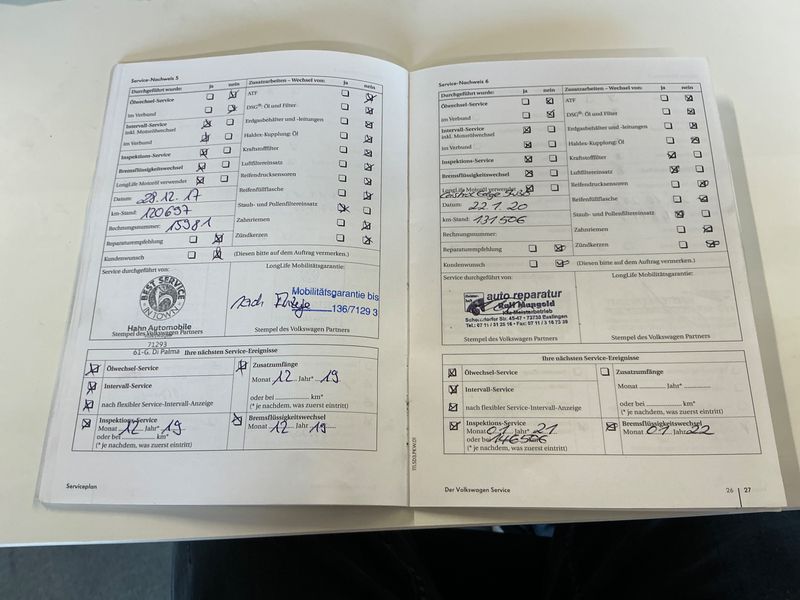 Service-Nachweis 5
Durchgeführt wurde: ja nein
Ölwechsel-Service
im Verbund
Intervall-Service
inkl. Motorölwechsel
im Verbund
Inspektions-Service
Bremsflüssigkeitswechsel
LongLife Motoröl verwendet
Datum: 28.12.17
km-Stand: 120697
Rechnungsnummer: 15981
Reparaturempfehlung
Kundenwunsch
Zusatzarbeiten – Wechsel von: ja nein
ATF
DSG®: Öl und Filter
Erdgasbehälter und -leitungen
Haldex-Kupplung: Öl
Kraftstofffilter
Luftfiltereinsatz
Reifendrucksensoren
Reifenfüllflasche
Staub- und Pollenfiltereinsatz
Zahnriemen
Zündkerzen
(Diesen bitte auf dem Auftrag vermerken.)
Service durchgeführt von:
BEST SERVICE
IN TOWN
Hahn Automobile
Stempel des Volkswagen Partners
71293
61-G. Di Palma
LongLife Mobilitätsgarantie:
Mobilitätsgarantie bis
nach
136/7129 3
Stempel des Volkswagen Partners
Ihre nächsten Service-Ereignisse
Ölwechsel-Service
Intervall-Service
nach flexibler Service-Intervall-Anzeige
Inspektions-Service
Monat 12 Jahr* 19
oder bei km*
(* je nachdem, was zuerst eintritt)
Zusatzumfänge
Monat 12 Jahr* 19
oder bei km*
(* je nachdem, was zuerst eintritt)
Bremsflüssigkeitswechsel
Monat 12 Jahr 19
Serviceplan
Service-Nachweis 6
Durchgeführt wurde: ja nein
Ölwechsel-Service
im Verbund
Intervall-Service
inkl. Motorölwechsel
im Verbund
Inspektions-Service
Bremsflüssigkeitswechsel
LongLife Motoröl verwendet
Castrol Edge 5W30
Datum: 22.1.20
km-Stand: 131506
Rechnungsnummer:
Reparaturempfehlung
Kundenwunsch
Zusatzarbeiten – Wechsel von: ja nein
ATF
DSG®: Öl und Filter
Erdgasbehälter und -leitungen
Haldex-Kupplung: Öl
Kraftstofffilter
Luftfiltereinsatz
Reifendrucksensoren
Reifenfüllflasche
Staub- und Pollenfiltereinsatz
Zahnriemen
Zündkerzen
(Diesen bitte auf dem Auftrag vermerken.)
Service durchgeführt von:
auto reparatur
Ralf Mangold
Kfz-Meisterbetrieb
Schorndorfer Str. 45-47 • 73730 Esslingen
Stempel des Volkswagen Partners
LongLife Mobilitätsgarantie:
Stempel des Volkswagen Partners
Ihre nächsten Service-Ereignisse
Ölwechsel-Service
Intervall-Service
nach flexibler Service-Intervall-Anzeige
Inspektions-Service
Monat 01 Jahr* 21
oder bei 146506
(* je nachdem, was zuerst eintritt)
Zusatzumfänge
Monat Jahr*
oder bei km*
(* je nachdem, was zuerst eintritt)
Bremsflüssigkeitswechsel
Monat 01 Jahr 22
Der Volkswagen Service
26 | 27